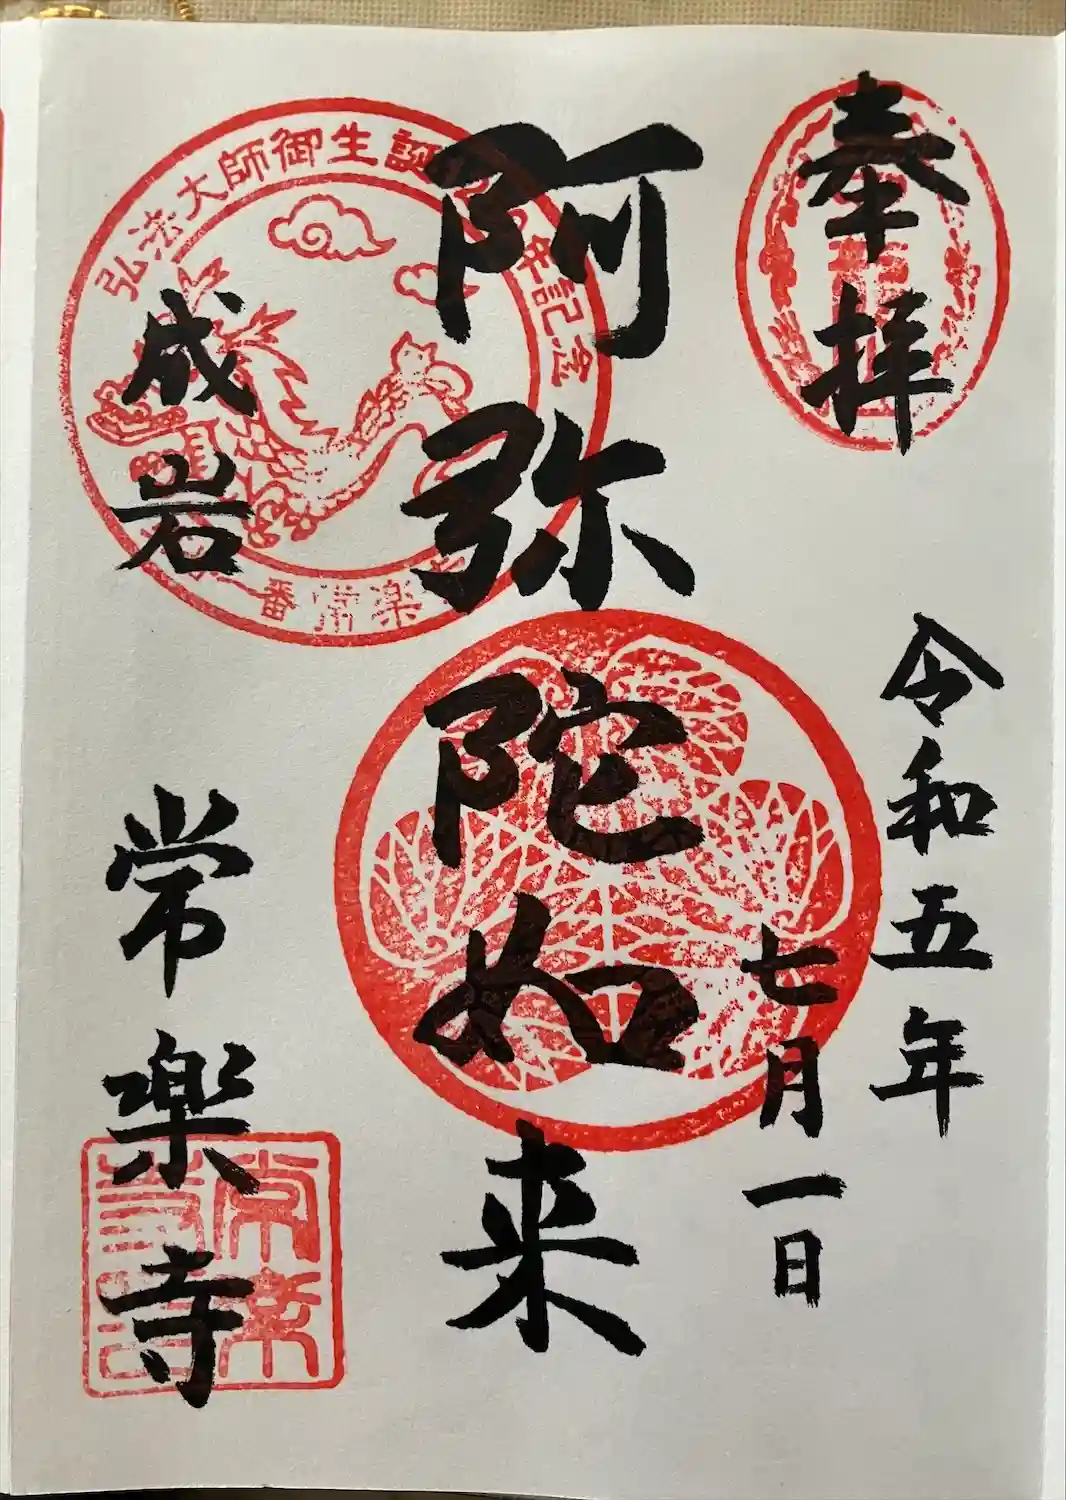 奉拝
令和五年
七月一日
阿弥陀如来
成岩
常楽寺
弘法大師御生誕
年記念
番常楽
常楽